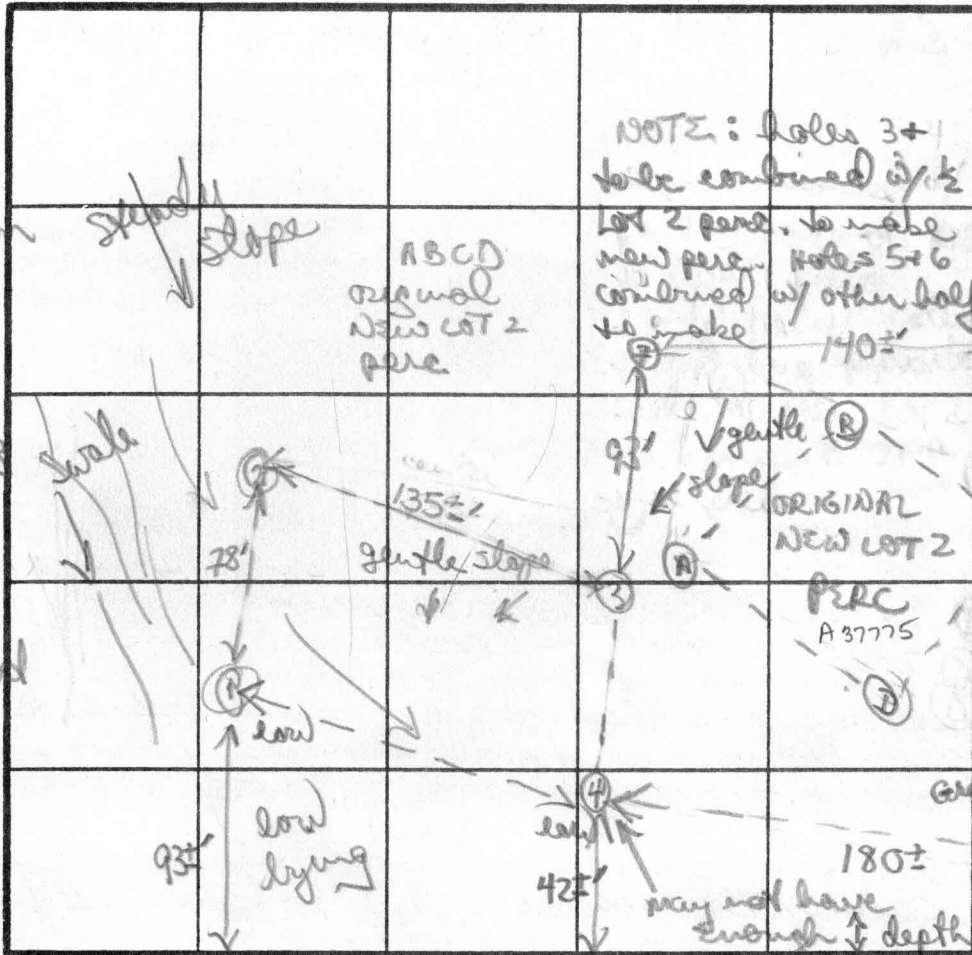 NOTE: holes 3+
to be combined w/ ½
Lot 2 perc. to make
new perc. Holes 5+6
combined w/ other half
to make
steady
slope
ABCD
original
NEW LOT 2
perc
140±'
B
swale
2
135±'
gentle slope
78'
93'
gentle
slope
A
ORIGINAL
NEW LOT 2
PERC
A 37775
3
D
1
low
4
low
low
lying
93±'
42±'
180±
may not have
enough depth